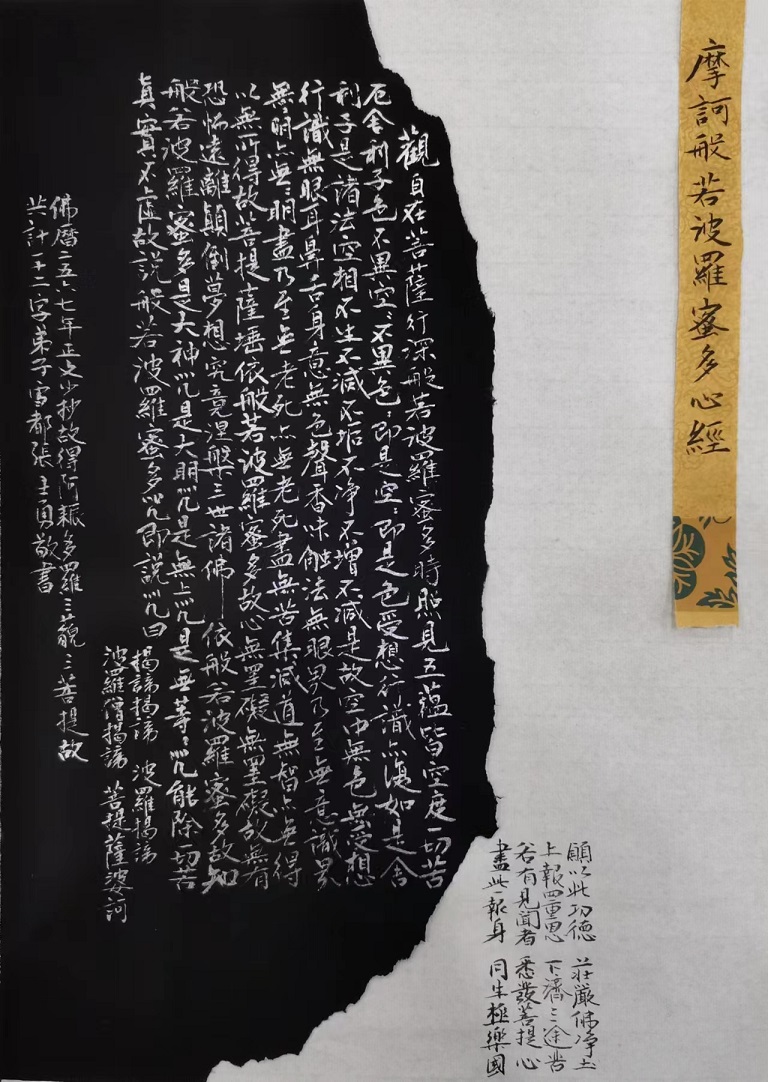 摩訶般若波羅蜜多心經
觀自在菩薩行深般若波羅蜜多時照見五蘊皆空度一切苦
厄舍利子色不異空〻不異色〻即是空〻即是色受想行識亦復如是舍
利子是諸法空相不生不滅不垢不淨不增不減是故空中無色無受想
行識無眼耳鼻舌身意無色聲香味觸法無眼界乃至無意識界
無〻明亦無〻明盡乃至無老死亦無老死盡無苦集滅道無智亦無得
以無所得故菩提薩埵依般若波羅蜜多故心無罣礙無罣礙故無有
恐怖遠離顛倒夢想究竟涅槃三世諸佛依般若波羅蜜多故知
般若波羅蜜多是大神咒是大明咒是無上咒是無等〻咒能除一切苦
真實不虛故說般若波羅蜜多咒即說咒曰
揭諦揭諦 波羅揭諦
波羅僧揭諦 菩提薩婆訶
佛曆二五六七年正文少抄故得阿耨多羅三藐三菩提故
共計一十二字弟子雩都張貞敬書
願以此功德 莊嚴佛淨土
上報四重恩 下濟三途苦
若有見聞者 悉發菩提心
盡此一報身 同生極樂國